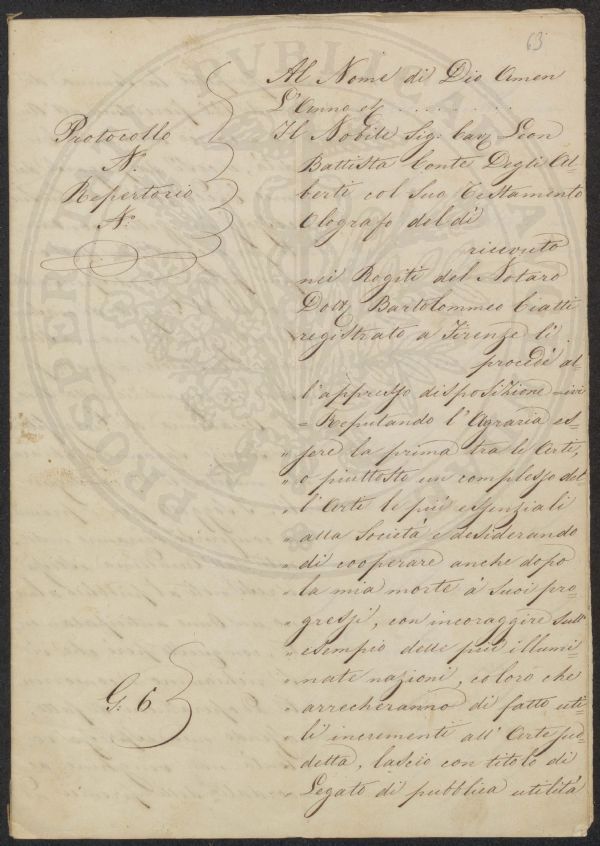 63
Al Nome di Dio Amen
L'Anno ec. . . . . . . . . .
Protocollo
N.º
Repertorio
N.º
Il Nobile Sig: Cav Leon
Battista Conte Degli Al-
berti col suo Testamento
Olografo del dì
ricevuto
nei Rogiti del Notaro
Dott Bartolommeo Ciatti
registrato a Firenze li
procedè al-
l'appresso disposizione = ivi
= Reputando l'Agraria es-
„ sere la prima tra le Arti,
„ o piuttosto un complesso del-
„ l'Arti le più essenziali
„ alla Società e desiderando
„ di cooperare anche dopo
„ la mia morte à suoi pro-
„ gressi, con incoraggire sull'
„ esempio delle più illumi-
„ nate nazioni, coloro che
„ arrecheranno di fatto uti-
„ li incrementi all'Arte pre-
„ detta, lascio con titolo di
„ Legato di pubblica utilità
G. 6
PROSPERITÀ PUBLICA